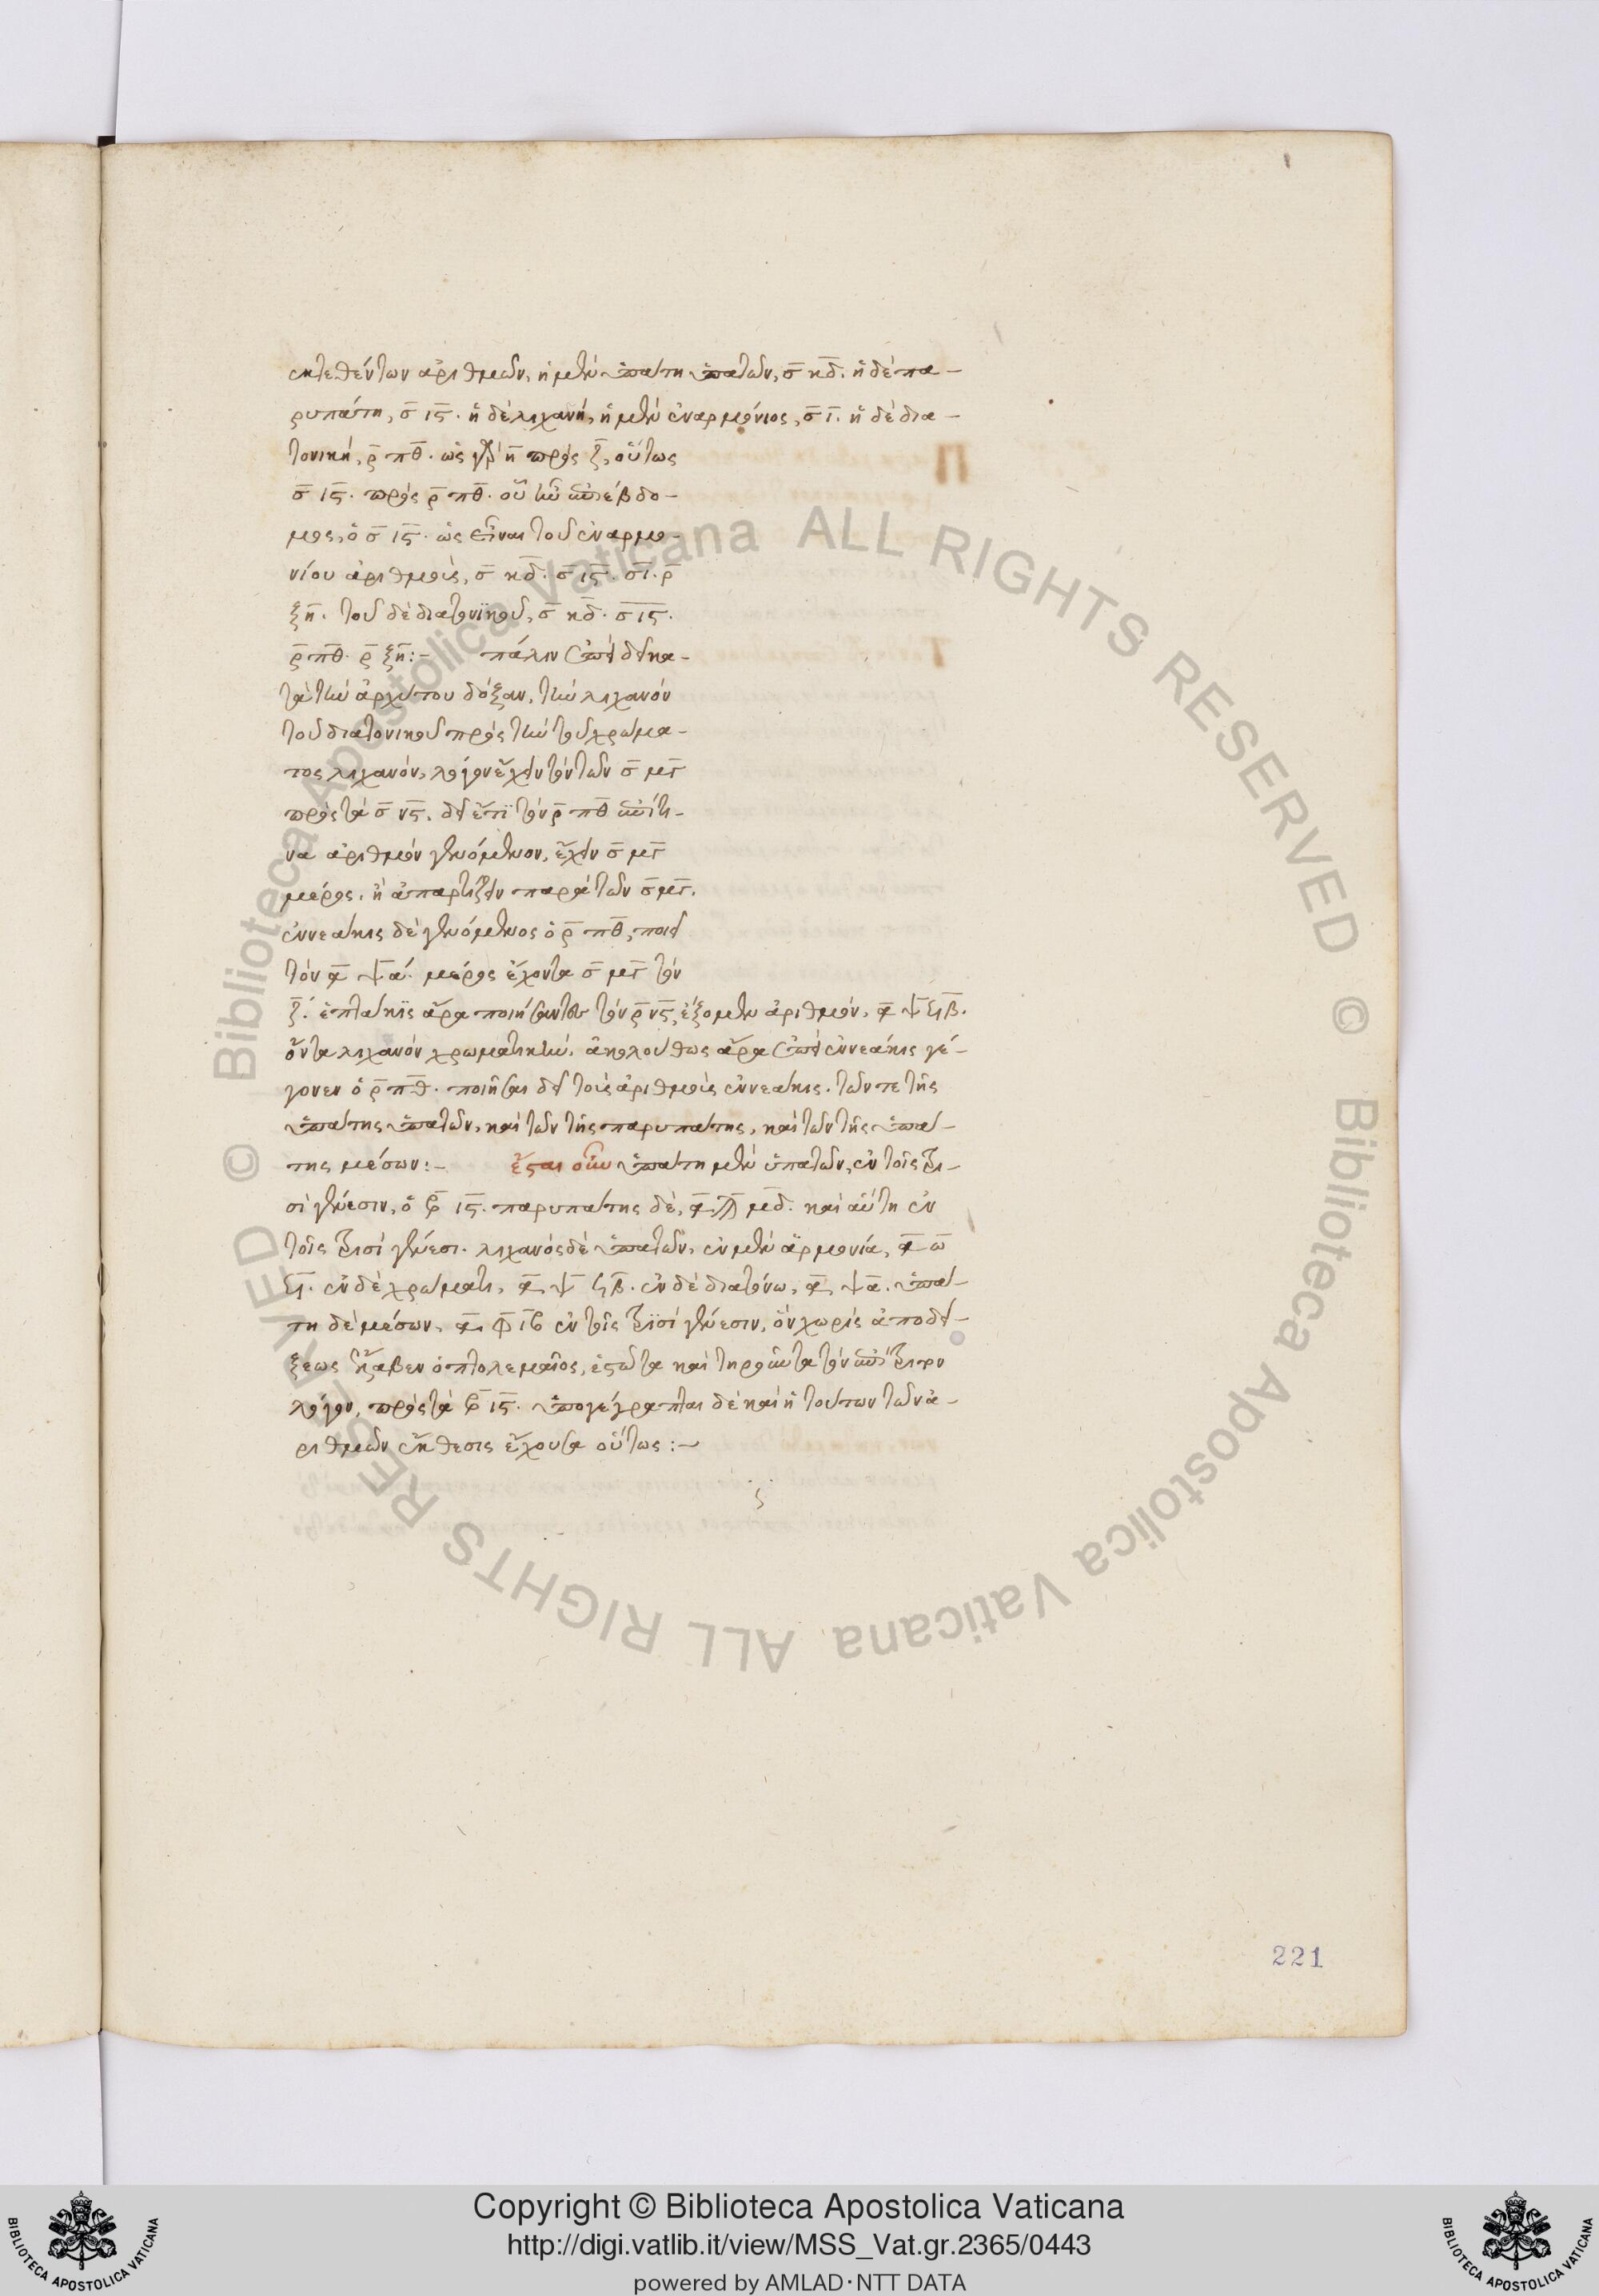 εκτεθέντων ἀριθμῶν, ἡ μὲν ὑπάτη ὑπάτων, σ̅ κ̅δ̅. ἡ δὲ πα-
ρυπάτη, σ̅ ι̅ϛ̅. ἡ δὲ λιχανή, ἡ μὲν ἐναρμόνιος, σ̅ ι̅. ἡ δὲ δια-
τονική, ρ̅ π̅θ̅. ὡς γὰρ η̅ πρὸς ζ̅, οὕτως
σ̅ ι̅ϛ̅. πρὸς ρ̅ π̅θ̅. οὗ ἐφέβδο-
μος, ὁ σ̅ ι̅ϛ̅. ὡς εἶναι τοῦ ἐναρμο-
νίου ἀριθμοὺς, σ̅ κ̅δ̅. σ̅ ι̅ϛ̅. σ̅ι̅. ρ̅
ξ̅η̅. τοῦ δὲ διατονϊκοῦ, σ̅ κ̅δ̅. σ̅ ι̅ϛ̅.
ρ̅ π̅θ̅. ρ̅ ξ̅η̅:- πάλιν ἐπεὶ δεῖ κα-
τὰ τὴν ἀρχύτου δόξαν, τὴν λιχανὸν
τοῦ διατονικοῦ πρὸς τὴν τοῦ χρώμα-
τος λιχανόν, λόγον ἔχειν τὸν τῶν σ̅ μ̅γ̅
πρὸς τὰ σ̅ ν̅ϛ̅. δεῖ ἐπὶ τὸν ρ̅ π̅θ̅ ἐπί τι-
να ἀριθμὸν γενόμενον, ἔχειν σ̅ μ̅γ̅
μέρος, ἢ ἀπαρτίζειν παρὰ τῶν σ̅ μ̅γ̅.
ἐννεάκις δὲ γενόμενος ὁ ρ̅ π̅θ̅, ποιεῖ
τὸν α̅ ψ̅ α̅. μέρος ἔχοντα σ̅ μ̅γ̅ τὸν
ζ̅. ἑπτάκϊς ἄρα ποιήσαντες τὸν ρ̅ ν̅ϛ̅, ἕξομεν ἀριθμόν, α̅ ψ̅ ϟ̅β̅.
ὄντα λιχανὸν χρωματικήν. ἀκολούθως ἄρα ἐπεὶ ἐννεάκις γέ-
γονεν ὁ ρ̅ π̅θ̅. ποιῆσαι δεῖ τοὺς ἀριθμοὺς ἐννεάκις. τῶν τε τῆς
ὑπάτης ὑπάτων, καὶ τῶν τῆς παρυπάτης, καὶ τῶν τῆς ὑπά-
της μέσων:- ἔσται οὖν ὑπάτη μὲν ὑπάτων, ἐν τοῖς τρι-
σὶ γένεσιν, ὁ β̅ ι̅ϛ̅. παρυπάτης δὲ, α̅ ϡ̅ μ̅δ̅. καὶ αὕτη ἐν
τοῖς τρισὶ γένεσι. λιχανὸς δὲ ὑπάτων, ἐν μὲν ἁρμονία, α̅ ω̅
ϟ̅. ἐν δὲ χρώματι, α̅ ψ̅ ϟ̅β̅. ἐν δὲ διατόνω, α̅ ψ̅ α̅. ὑπά-
τη δὲ μέσων, α̅ φ̅ ι̅β̅ ἐν τοῖς τρϊσὶ γένεσιν, ὃν χωρὶς ἀποδεί-
ξεως ἔλαβεν ὁ πτολεμαῖος, ἑστῶτα καὶ τηροῦντα τὸν ἐπίτριτον
λόγον, πρὸς τὰ β̅ ι̅ϛ̅. ὑπογέγραπται δὲ καὶ ἡ τούτων τῶν ἀ-
ριθμῶν ἔκθεσις ἔχουσα οὕτως:-
221
Copyright © Biblioteca Apostolica Vaticana
http://digi.vatlib.it/view/MSS_Vat.gr.2365/0443
powered by AMLAD·NTT DATA
© Biblioteca Apostolica Vaticana ALL RIGHTS RESERVED
© Biblioteca Apostolica Vaticana ALL RIGHTS RESERVED
BIBLIOTECA APOSTOLICA VATICANA
BIBLIOTECA APOSTOLICA VATICANA